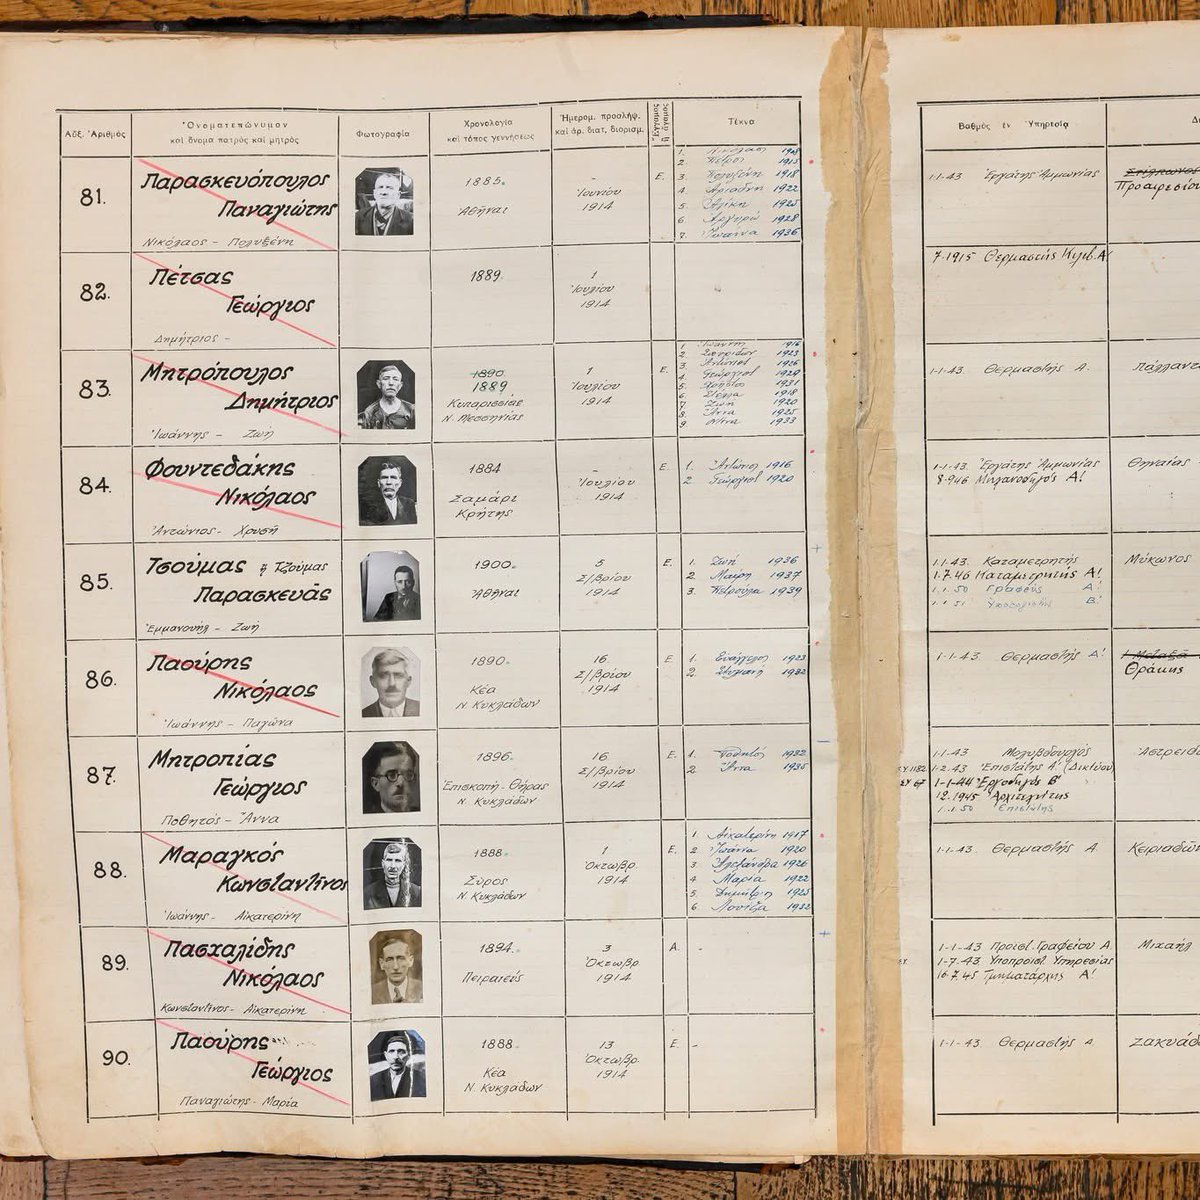 Αὔξ. Ἀριθμὸς
Ὀνοματεπώνυμον
καὶ ὄνομα πατρὸς καὶ μητρὸς
Φωτογραφία
Χρονολογία
καὶ τόπος γεννήσεως
Ἡμερομ. προσλήψ.
καὶ ἀρ. διατ. διορισμ.
Ἔγγαμος
ἢ ἄγαμος
Τέκνα
Βαθμὸς ἐν Ὑπηρεσίᾳ
81.
Παρασκευόπουλος
Παναγιώτης
Νικόλαος - Πολυξένη
1885.
Ἀθῆναι
-
Ἰουνίου
1914
Ε.
1. Νικόλαος 1913
2. Πέτρος 1915
3 Πολυξένη 1918
4 Ἀριάδνη 1922
5 Ἀλίκη 1925
6 Ἀργυρώ 1928
7. Ἰωάννα 1936
1-1-43 Ἐργάτης Ἀμμωνίας
Προαιρεσίου
82.
Πέτσας
Γεώργιος
Δημήτριος -
1889
1
Ἰουλίου
1914
7-1915 Θερμαστής Κλιβ. Α!
83.
Μητρόπουλος
Δημήτριος
Ἰωάννης - Ζωή
1890
1889
Κυπαρισσίας
Ν. Μεσσηνίας
1
Ἰουλίου
1914
Ε.
1 Ἰωάννης 1916
2. Σπυρίδων 1923
3. Ἀντώνιος 1926
4 Γεώργιος 1929
5. Χρῆστος 1931
6. Στέλλα 1918
7 Ζωή 1920
8. Ἄννα 1925
9. Ντίνα 1933
1-1-43 Θερμαστής Α.
84.
Φουντεδάκης
Νικόλαος
Ἀντώνιος - Χρυσῆ
1884
Σαμάρι
Κρήτης
-
Ἰουλίου
1914
Ε.
1. Ἀντώνιος 1916
2 Γεώργιος 1920
1-1-43. Ἐργάτης Ἀμμωνίας
8-946 Μηχανοδηγός Α!
Θηναίας -
85.
Τσούμας ἢ Τζούμας
Παρασκευᾶς
Ἐμμανουὴλ - Ζωή
1900.
Ἀθῆναι
5
Σ/βρίου
1914
Ε.
1. Ζωή 1936
2. Μαίρη 1937
3. Πετρούλα 1939
1-1-43. Καταμετρητής
1-7-46 Καταμετρητής Α!
1.1.50 Γραφεύς Α!
1.1.51 Ὑπολογιστής Β!
Μύκωνος
86.
Παούρης
Νικόλαος
Ἰωάννης - Παγώνα
1890.
Κέα
Ν. Κυκλάδων
16
Σ/βρίου
1914
Ε
1. Εὐάγγελος 1923
2. Στυλιανή 1932
1-1-43. Θερμαστής Α!
Μεταξᾶ
Θράκης
87.
Μητροπίας
Γεώργιος
Ποθητός - Ἄννα
1896.
Ἐπισκοπή - Θήρας
Ν. Κυκλάδων
16
Σ/βρίου
1914
Ε.
1. Ποθητός 1932
2. Ἄννα 1935
1-1-43 Μολυβδουργός
1-2-43 Ἐπιστάτης Α' (Δικτύου)
1-1-44 Ἐργοδηγός Β'
1.2.1945 Ἀρχιτεχνίτης
1.1.50 Ἐπιστάτης
88.
Μαραγκός
Κωνσταντῖνος
Ἰωάννης - Αἰκατερίνη
1888.
Σύρος
Ν. Κυκλάδων
1
Ὀκτωβρ.
1914
Ε.
1. Αἰκατερίνη 1917
2 Ἰωάννα 1920
3. Ἀλεξάνδρα 1926
4 Μαρία 1922
5. Δημήτρ-η 1925
6 Λουΐζα 1932
1-1-43. Θερμαστής Α
Κειριαδῶν
89.
Πασχαλίδης
Νικόλαος
Κωνσταντῖνος - Αἰκατερίνη
1894.
Πειραιεύς
3
Ὀκτωβρ.
1914
Α.
-
1-1-43 Προϊστ. Γραφείου Α
1-7-43 Ὑποπροϊστ. Ὑπηρεσίας
16.7.45 Τμηματάρχης Α!
Μιχαήλ
90.
Παούρης
Γεώργιος
Παναγιώτης - Μαρία
1888.
Κέα
Ν. Κυκλάδων
13
Ὀκτωβρ.
1914
Ε.
-
1-1-43. Θερμαστής Α